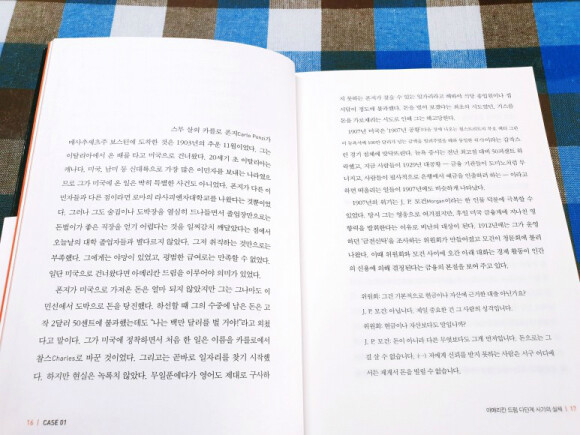 스무 살의 카를로 폰지Carlo Ponzi가
매사추세츠주 보스턴에 도착한 것은 1903년의 추운 11월이었다. 그는
이탈리아에서 온 배를 타고 미국으로 건너왔다. 20세기 초 이탈리아는
캐나다, 미국, 남미 등 신대륙으로 가장 많은 이민자를 보내는 나라였으
므로 그가 미국에 온 일은 딱히 특별한 사건도 아니었다. 폰지가 다른 이
민자들과 다른 점이라면 로마의 라사피엔차대학교를 나왔다는 것뿐이었
다. 그러나 그도 술집이나 도박장을 열심히 드나들면서 졸업장만으로는
돈벌이가 좋은 직장을 얻기 어렵다는 것을 일찌감치 깨달았다는 점에서
오늘날의 대학 졸업자들과 별다르지 않았다. 그저 취직하는 것만으로는
부족했다. 그에게는 야망이 있었고, 평범한 급여로는 만족할 수 없었다.
일단 미국으로 건너왔다면 아메리칸 드림을 이루어야 의미가 있었다.
폰지가 미국으로 가져온 돈은 얼마 되지 않았지만, 그는 그나마도 이
민선에서 도박으로 돈을 탕진했다. 하선할 때 그의 수중에 남은 돈은 고
작 2달러 50센트에 불과했는데도 “나는 백만 달러를 벌 거야!”라고 외쳤
다고 말이다. 그가 미국에 정착하면서 처음 한 일은 이름을 카를로에서
찰스Charles로 바꾼 것이었다. 그리고는 곧바로 일자리를 찾기 시작했
다. 하지만 현실은 녹록지 않았다. 무일푼에다가 영어도 제대로 구사하
16 | CASE 01
지 못하는 폰지가 잡을 수 있는 일자리라고 해봐야 식당 종업원이나 접
시닦이 정도에 불과했다. 돈을 벌어 보겠다는 최초의 시도였던, 거스름
돈을 가로채려는 시도로 인해 그는 해고당한다.
1907년 미국은 '1907년 공황'
이라는 심각
선진 경기 침체에 맞닥뜨린다. 뉴욕 증시는 전년 최고점 대비 50퍼센트 하
락했고, 지금 사람들이 1929년 대공황 — 금융 기관들이 도미노처럼 무
너지고, 사람들이 필사적으로 은행에서 예금을 인출하려 하는 — 이라고
하면 떠올리는 일들이 1907년에도 비슷하게 나타났다.
1907년의 위기는 J. P. 모건Morgan이라는 한 인물 덕분에 극복할 수
있었다. 당시 그는 영웅으로 여겨졌지만, 후일 미국 금융계에 지나친 영
향력을 발휘한다는 이유로 비난의 대상이 된다. 1912년에는 그가 운영
하던 '금전신탁'을 조사하는 위원회가 만들어졌고 모건이 청문회에 불려
나왔다. 이때 위원회와 모건 사이에 오간 아래 대화는 경제 활동이 인간
의 신용에 의해 결정된다는 금융의 본질을 보여 주고 있다.
위원회: 그건 기본적으로 현금이나 자산에 근거한 대출 아닌가요?
J. P. 모건: 아닙니다. 제일 중요한 건 그 사람의 성격입니다.
위원회: 현금이나 자산보다도 말입니까?
J. P. 모건: 돈이 아니라 다른 무엇보다도 그게 먼저입니다. 돈으로는 그
걸 살 수 없습니다. (…) 저에게 신뢰를 받지 못하는 사람은 서구 어디에
서든 제게서 돈을 빌릴 수 없습니다.
아메리칸 드림 다단계 사기의 실체 | 17